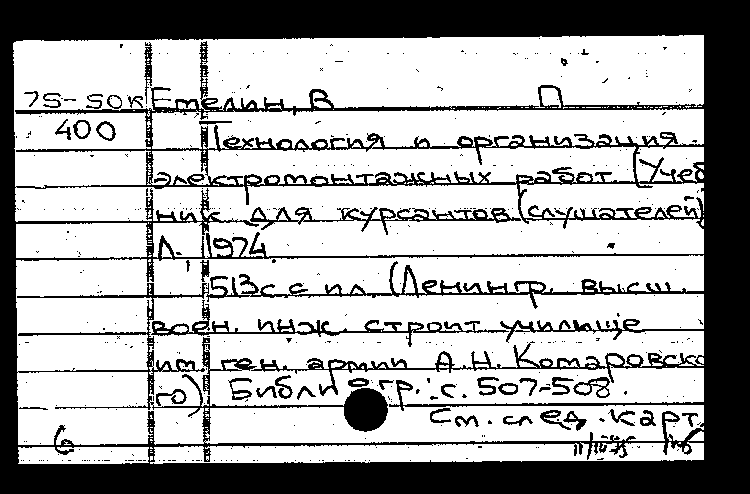 75-50к Емелин, В П
400 Технология и организация
электромонтажных работ. (Учеб
ник для курсантов (слушателей)
Л., 1974.
513с. с ил. (Ленингр. высш.
воен. инж. строит училище
им. ген. армии А.Н. Комаровско
го). Библиогр.: с. 507-508.
См. след. карт.
6